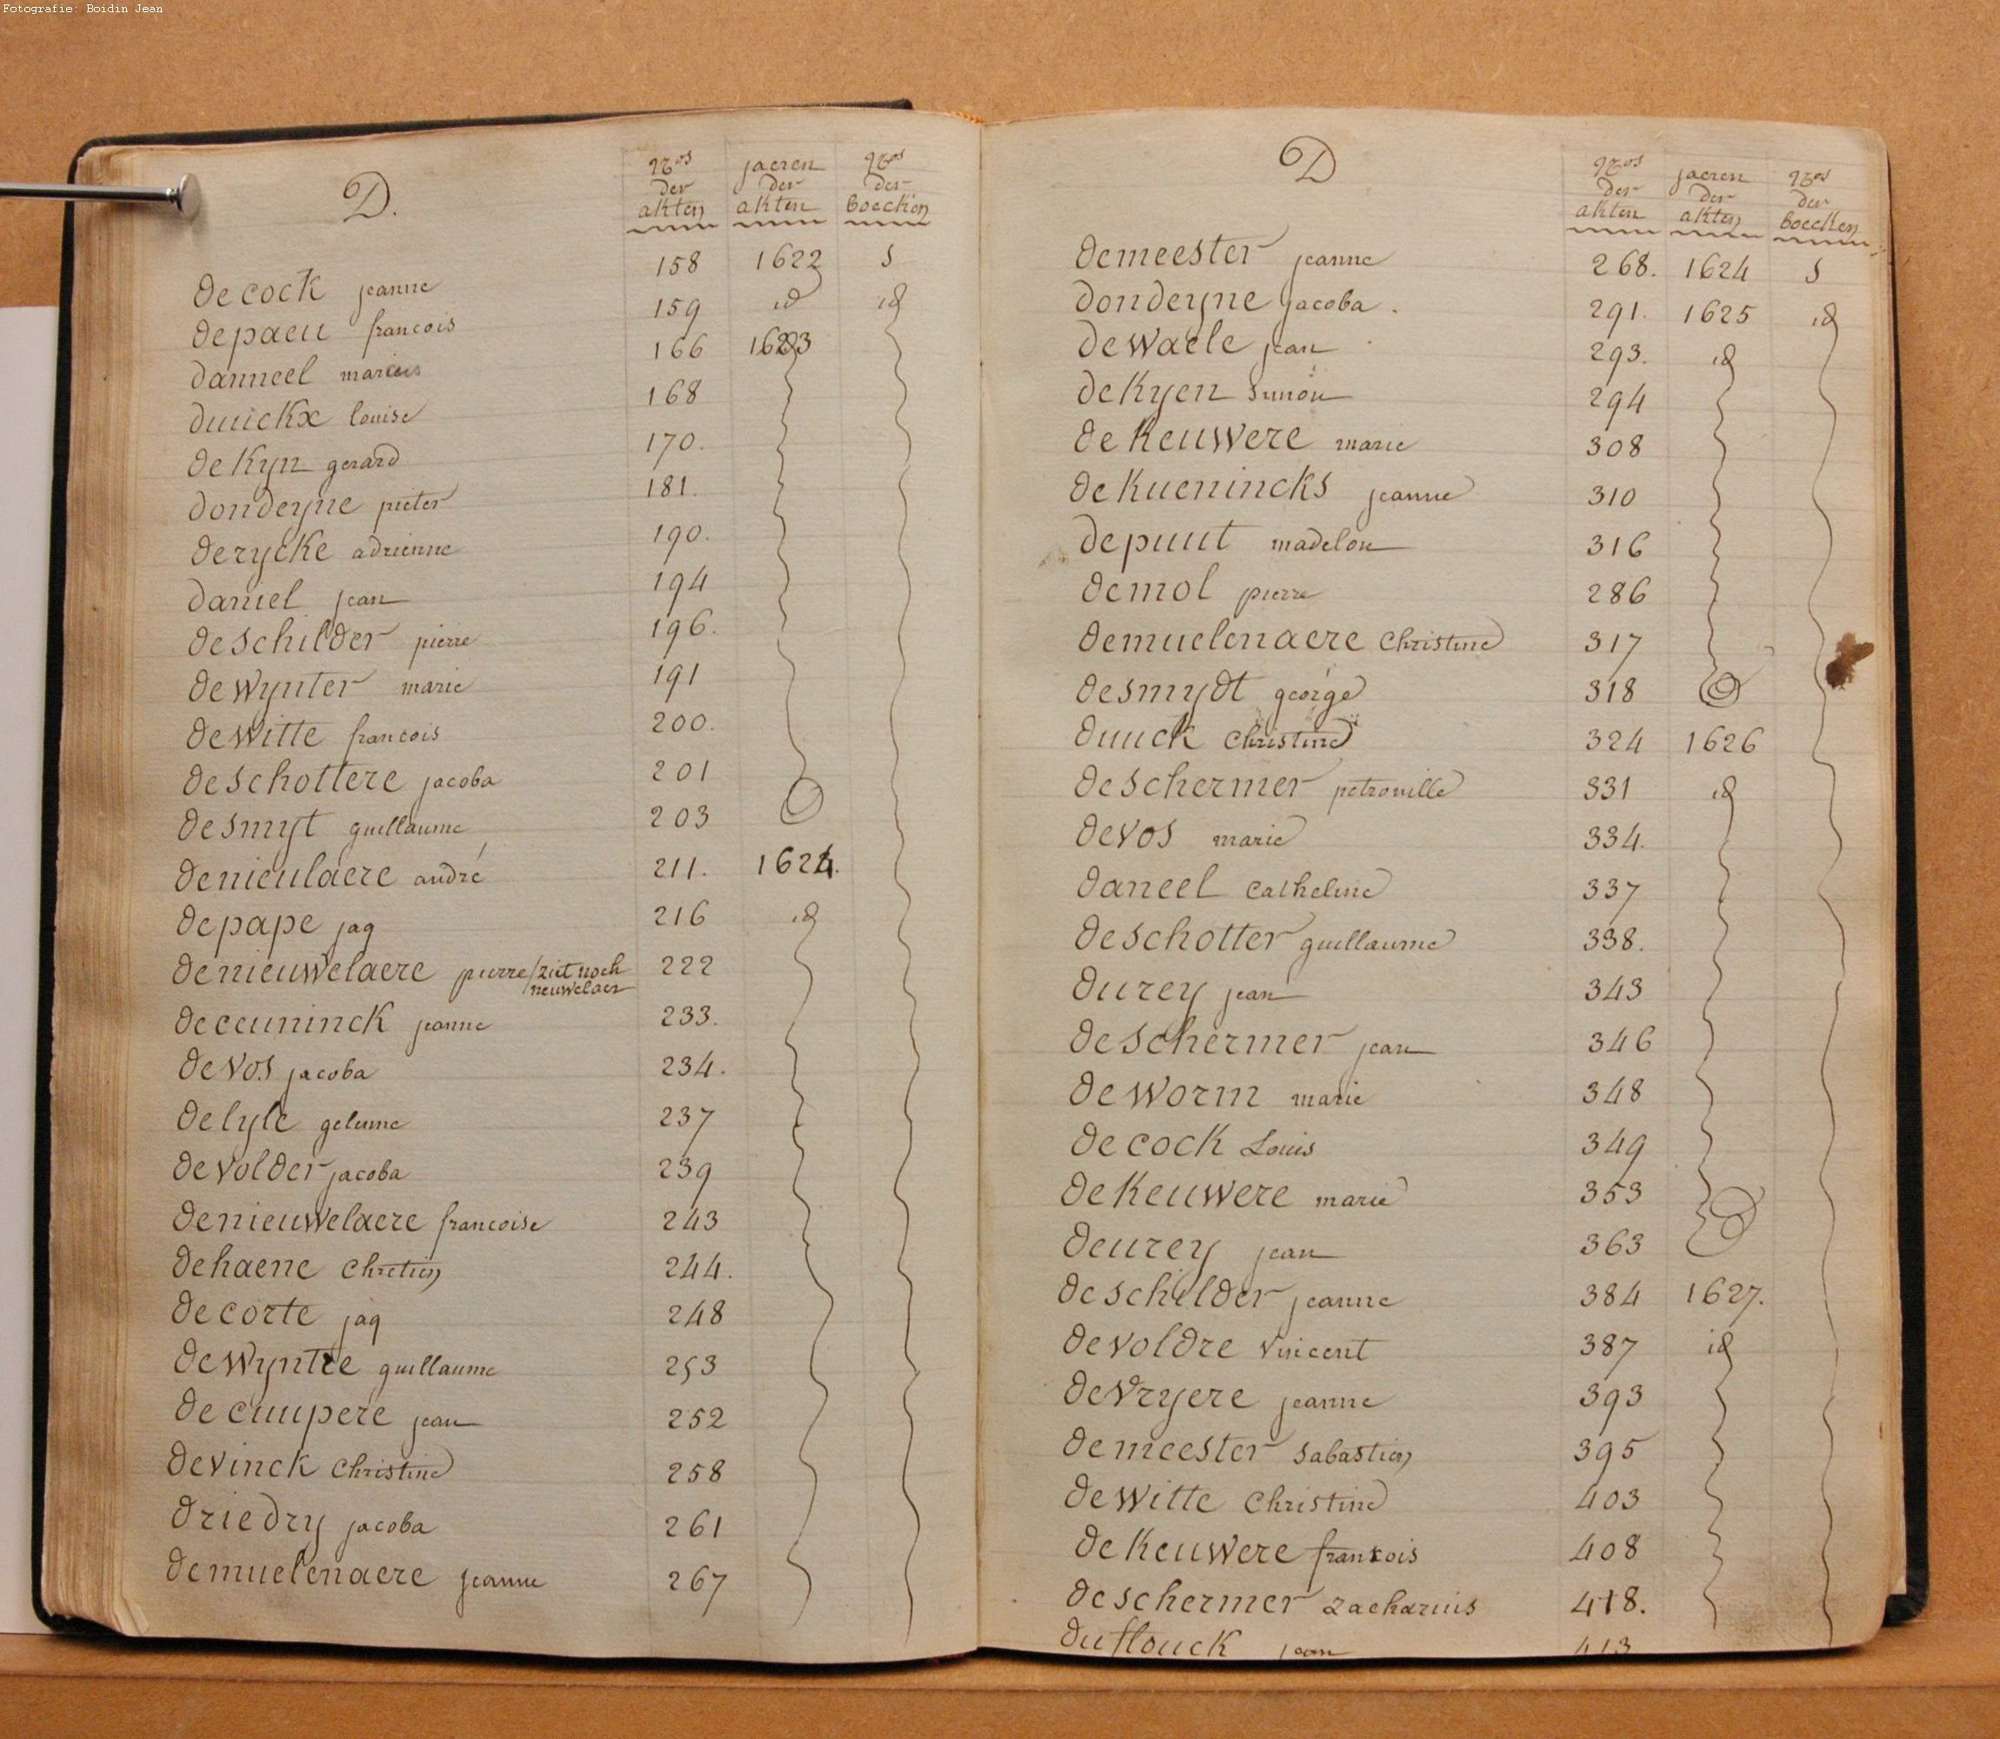 Fotografie: Boidin Jean
D.
Nos der akten jaeren der akten Nos der boecken
decock jeanne 158 1622 5
depaeu francois 159 id id
danneel marcus 166 1623
duuckx louise 168
dekyn gerard 170.
dondeyne pieter 181.
derycke adrienne 190.
daniel jean 194
deschilder pierre 196.
dewynter marie 191
dewitte francois 200.
deschottere jacoba 201
desmyt guillaume 203
denieulaere andré 211. 1624.
depape jaq 216 id
denieuwelaere pierre / ziet noch neuwelaer 222
deceuninck jeanne 233.
devos jacoba 234.
delyle gelume 237
devolder jacoba 239
denieuwelaere francoise 243
dehaene Chretien 244.
decorte jaq 248
dewyntre guillaume 253
decuupere jean 252
devinck Christine 258
driedry jacoba 261
demuelenaere jeanne 267
D
Nos der akten jaeren der akten Nos der boecken
demeester jeanne 268. 1624 5
dondeyne jacoba. 291. 1625 id
dewaele jean 293. id
dekyen simon 294
dekeuwere marie 308
dekuenincks jeanne 310
depuut madelon 316
demol pierre 286
demuelenaere Christine 317
desmydt george 318
duuck Christine 324 1626
deschermer petronille 331 id
devos marie 334.
daneel Catheline 337
deschotter guillaume 338.
durey jean 343
deschermer jean 346
deworm marie 348
decock Louis 349
dekeuwere marie 353
deurey jean 363
deschilder jeanne 384 1627.
devoldre vincent 387 id
devryere jeanne 393
demeester sabastien 395
dewitte Christine 403
dekeuwere francois 408
deschermer zacharius 418.
duflouck jean 413